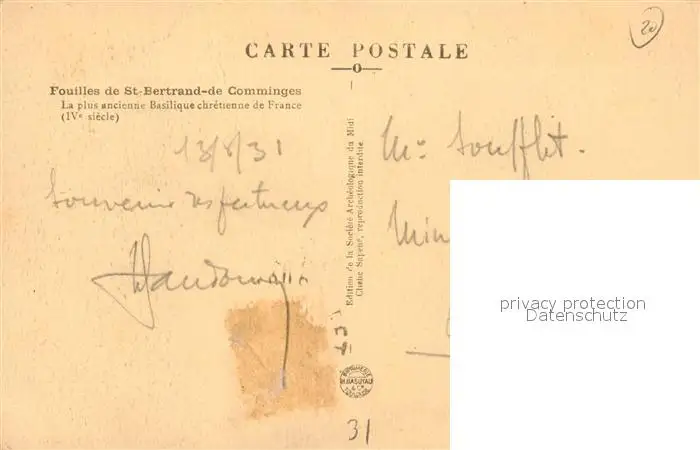 20
CARTE POSTALE
Fouilles de St-Bertrand-de Comminges
La plus ancienne Basilique chrétienne de France
(IVe siècle)
13/8/31
Souvenir
Edition de la Société Archéologique du Midi
Cliché Sapène, reproduction interdite
Mr Soufflet.
Min
privacy protection
Datenschutz
31